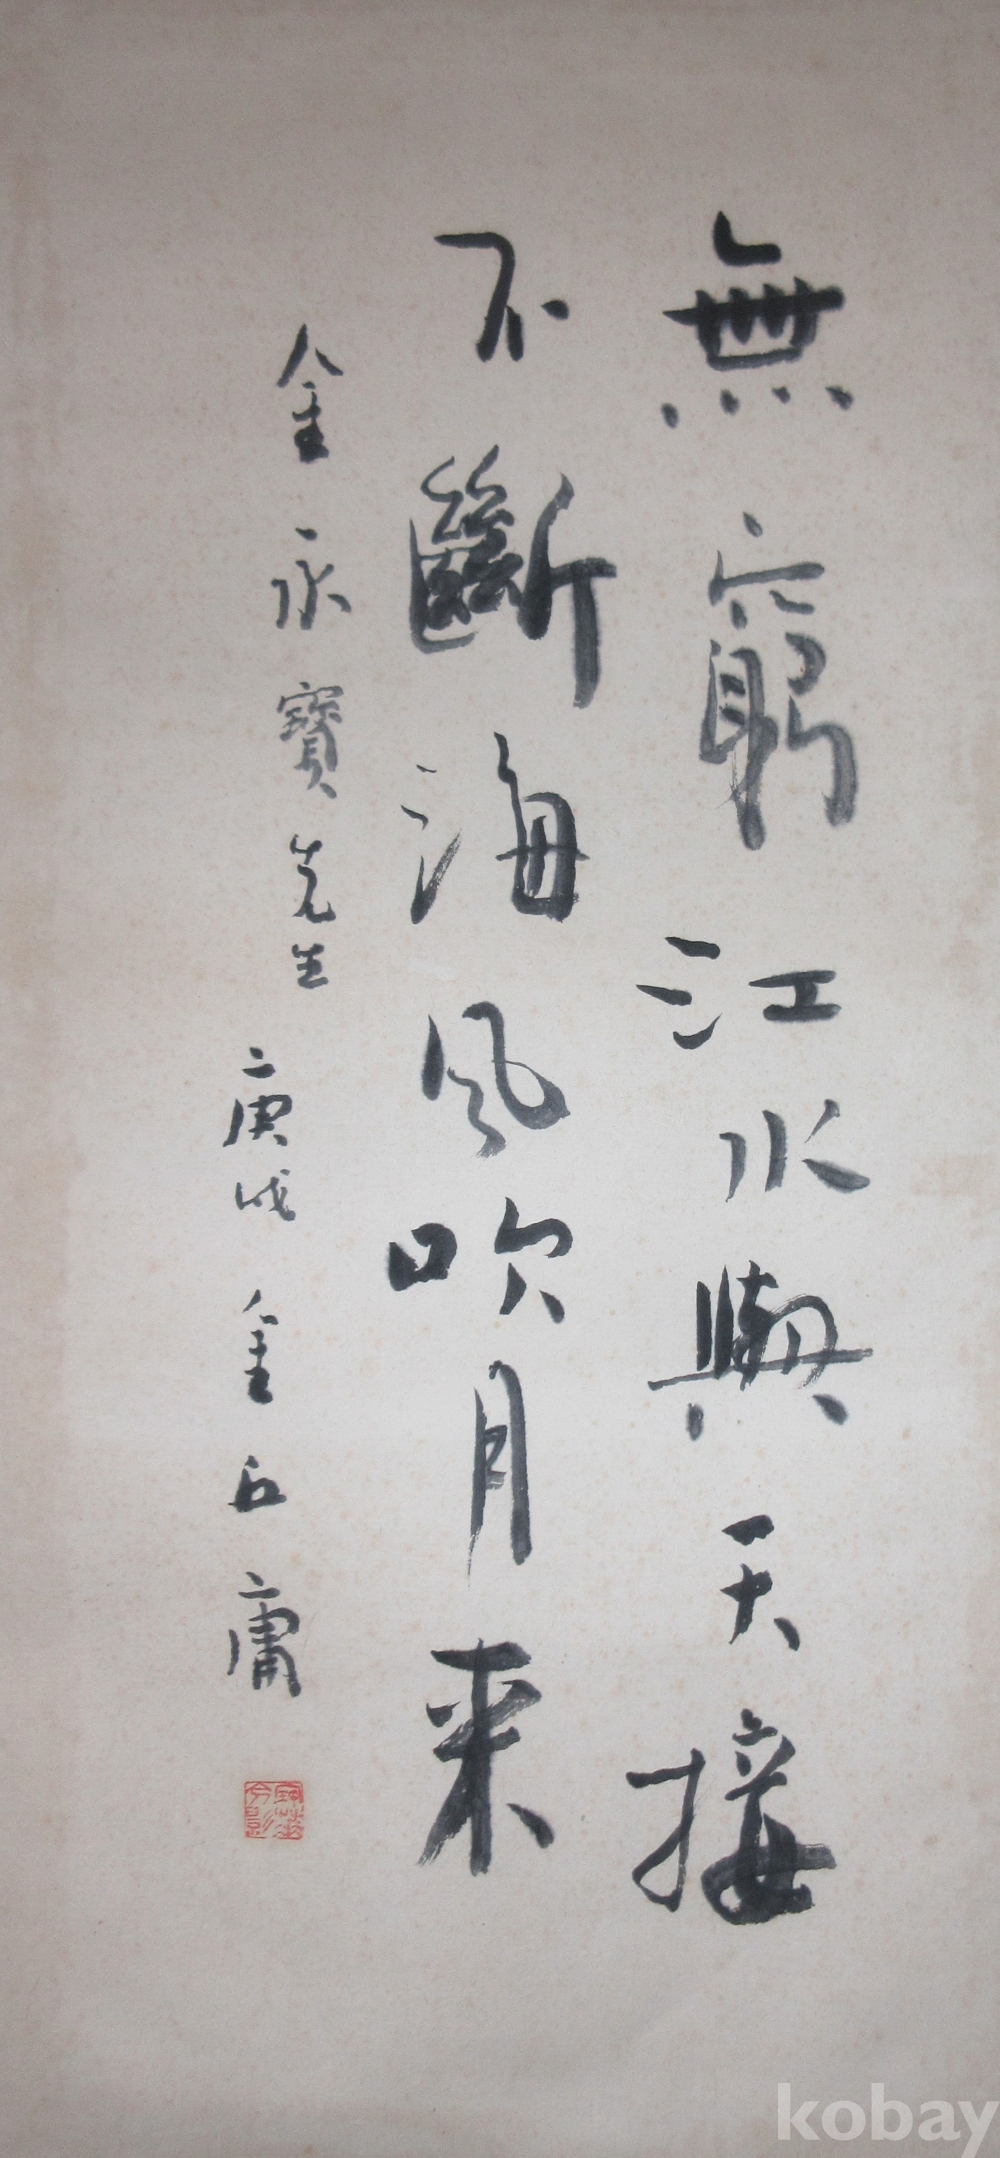 無窮江水與天接
不斷海風吹月来
金永寶先生
庚戌 金丘庸
kobay